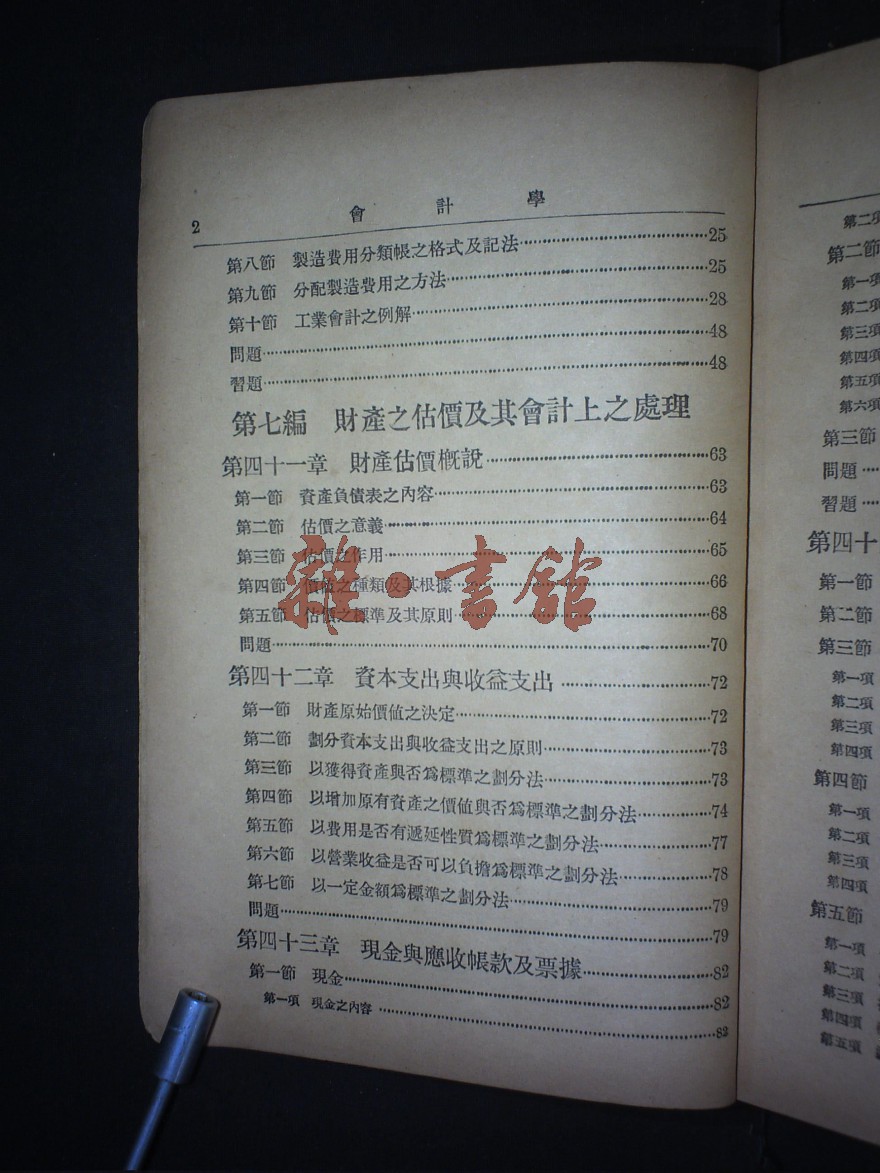 2
會計學
第八節 製造費用分類帳之格式及記法⋯⋯25
第九節 分配製造費用之方法⋯⋯25
第十節 工業會計之例解⋯⋯28
問題⋯⋯48
習題⋯⋯48
第七編 財產之估價及其會計上之處理
第四十一章 財產估價槪說⋯⋯63
第一節 資產負債表之內容⋯⋯63
第二節 估價之意義⋯⋯64
第三節 估價之作用⋯⋯65
第四節 價值之種類及其根據⋯⋯66
第五節 估價之標準及其原則⋯⋯68
問題⋯⋯70
第四十二章 資本支出與收益支出⋯⋯72
第一節 財產原始價値之決定⋯⋯72
第二節 劃分資本支出與收益支出之原則⋯⋯73
第三節 以獲得資產與否爲標準之劃分法⋯⋯73
第四節 以增加原有資產之價値與否爲標準之劃分法⋯⋯74
第五節 以費用是否有遞延性質爲標準之劃分法⋯⋯77
第六節 以營業收益是否可以負擔爲標準之劃分法⋯⋯78
第七節 以一定金額爲標準之劃分法⋯⋯79
問題⋯⋯79
第四十三章 現金與應收帳款及票據⋯⋯82
第一節 現金⋯⋯82
第一項 現金之內容⋯⋯83
雜·書館
第二項
第二節
第一項
第二項
第三項
第四項
第五項
第六項
第三節
問題⋯⋯
習題⋯⋯
第四十
第一節
第二節
第三節
第一項
第二項
第三項
第四項
第四節
第一項
第二項
第三項
第四項
第五節
第一項
第二項
第三項
第四項
第五項